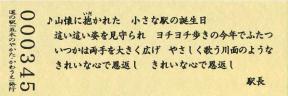 ♪山懐に抱かれた 小さな駅の誕生日
這い這い姿を見守られ ヨチヨチ歩きの今年でふたつ
いつかは両手を大きく広げ やさしく歌う川面のような
きれいな心で恩返し きれいな心で恩返し
駅長
000345